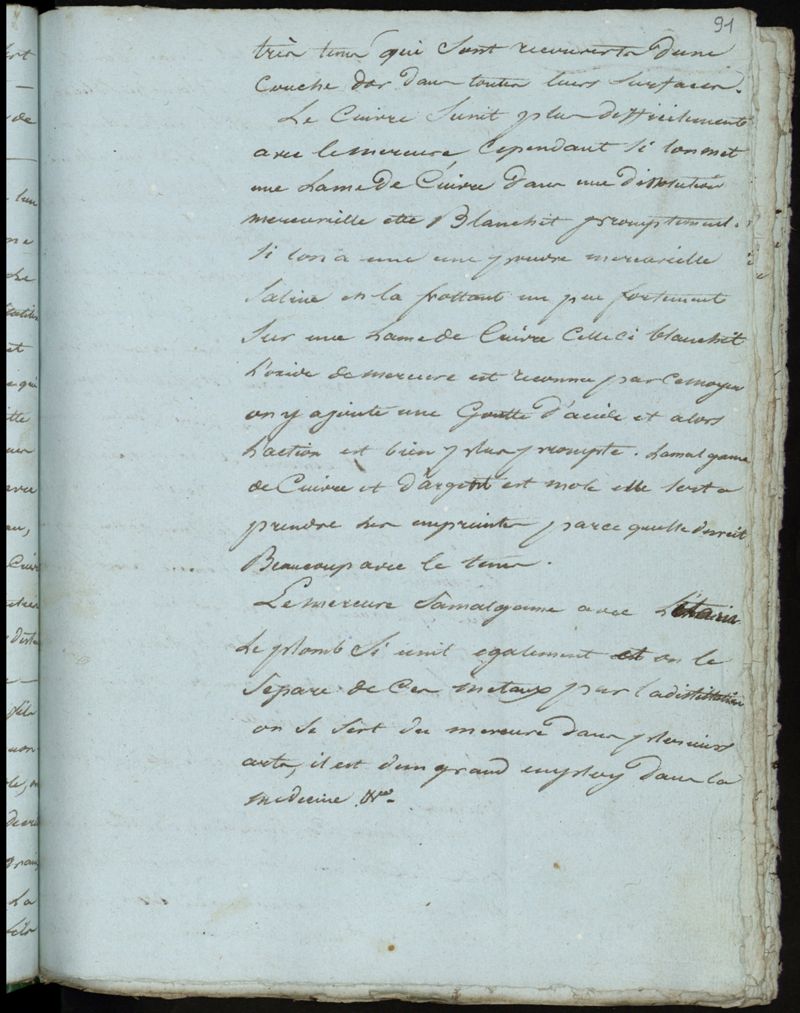 91
très tenu qui sont recouverts d'une
Couche dor dans toutes leurs surfaces.
Le Cuivre sunit plus difficilement
avec le mercure Cependant si lon met
une Lame De Cuivre dans une dissolution
mercurielle elle Blanchit promptement.
Si lon a une une poudre mercurielle
Saline en la frottant un peu fortement
Sur une Lame de Cuivre Celle Ci blanchit
L'oxide de mercure est reconnu par ce moyen
on y ajoute une Goutte d'acide et alors
Laction est bien plus prompte. Lamalgame
de Cuivre et d'argent est mole elle sert a
prendre des empreintes parce quelle durcit
Beaucoup avec le tems.
Le mercure Samalgame avec Létain
Le plomb Si unit egalement et on le
Separe de Ces metaux par la distillation
on se sert du mercure dans plusieurs
arts, il est d'un grand employ dans la
medecine &ca.